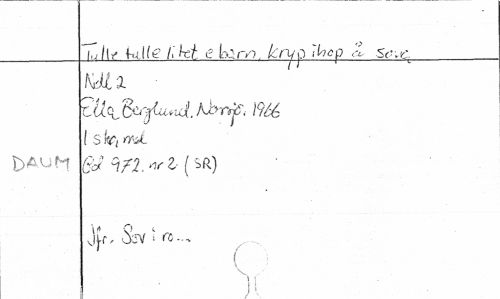 Tulle tulle litet e barn, kryp ihop å sova
Ndl 2
Ella Berglund, Norsjö, 1966
1 str, mel
DAUM Bd 972. nr 2 (SR)
Jfr. Sov i ro...